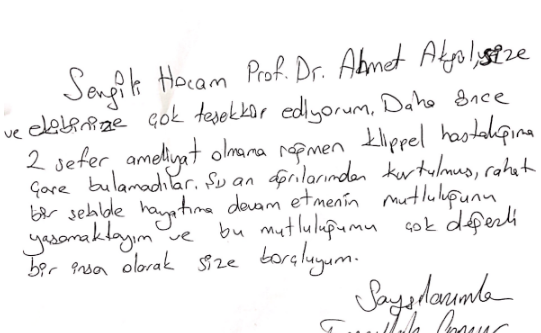 Sevgili Hocam Prof. Dr. Ahmet Akgül, size
ve ekibinize çok teşekkür ediyorum. Daha önce
2 sefer ameliyat olmama rağmen klippel hastalığına
çare bulamadılar. Şu an ağrılarımdan kurtulmuş, rahat
bir şekilde hayatıma devam etmenin mutluluğunu
yaşamaktayım ve bu mutluluğumu çok değerli
bir insan olarak size borçluyum.
Saygılarımla